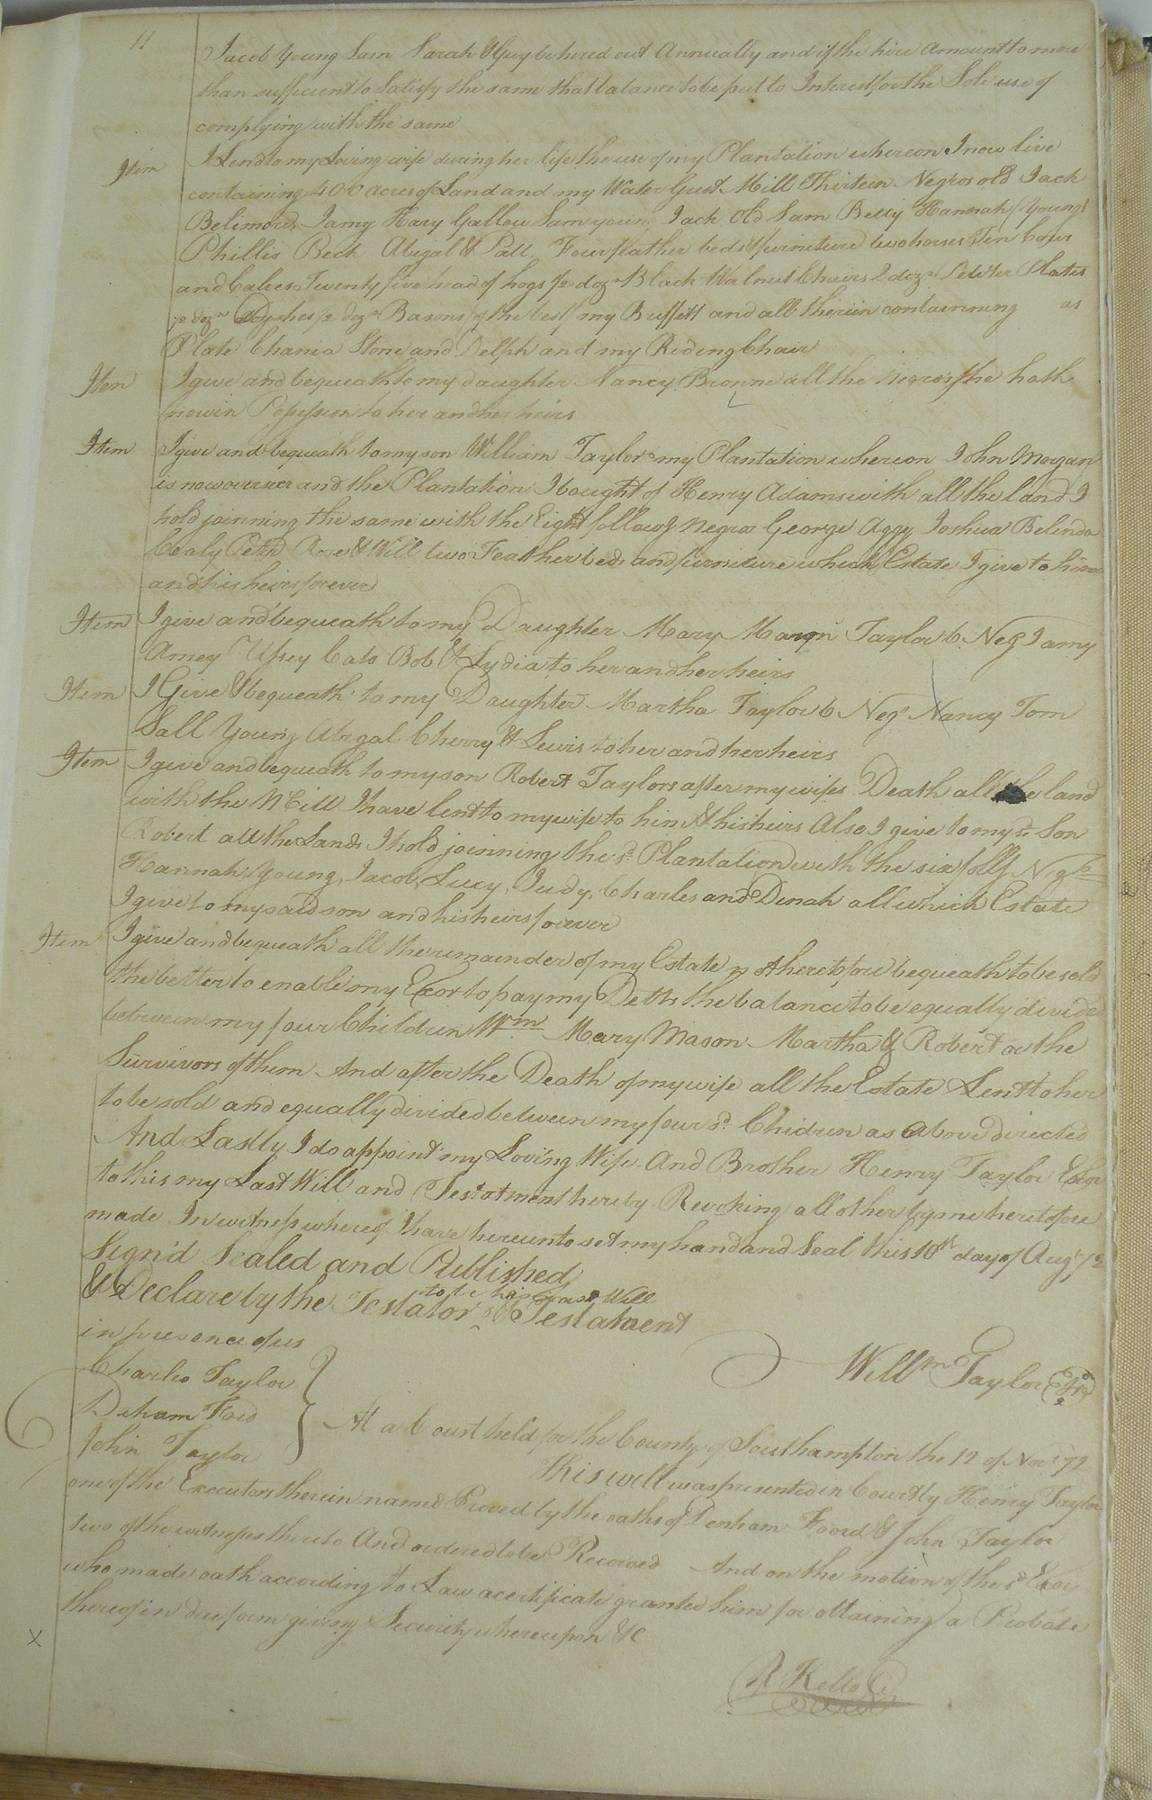 11
Jacob Young Sam Sarah & Guy be hered out Annually and if the hire Amount to more
than sufficient to Satisfy the same that balance to be put to Interest for the Sole use of
complying with the same
Item I Lend to my Loving wife during her life the use of my Plantation whereon I now live
containing 400 acres of Land and my Water Gust Mill Thirteen Negros old Jack
Belimore Jamy Hary Gallou Sam young Jack Old Sam Betty Hannah Young
Phillis Beck Abigal & Patt, Four feather beds & furniture two horses Ten Cows
and Calves Twenty five head of hogs ½ doz Black Walnut Chairs 2 dozn Pewter Plates
½ dozn Dyshes ½ dozn Basons of the best my Buffitt and all therein containing as
Plate Chania Stone and Delph and my Riding Chair
Item I give and bequeath to my daughter Nancy Browne all the negros she hath
now in Possession to her and her heirs
Item I give and bequeath to my son William Taylor my Plantation whereon John Morgan
is now overseer and the Plantation I bought of Henry Adams with all the land I
hold joinning the same with the Eight follow'g Negros George Aggy Joshua Belinda
Cealy Peter Rose & Will two Feather beds and furniture which Estate I give to him
and his heirs forever
Item I give and bequeath to my Daughter Mary Mason Taylor 6 Negs Jamy
Amey Upsey Cato Bob & Lydia to her and her heirs
Item I Give & bequeath to my Daughter Martha Taylor 6 Negs Nancy Tom
Sall Young Abigal Cherry & Lewis to her and her heirs
Item I give and bequeath to my son Robert Taylor after my wifes Death all the land
with the Mill I have lent to my wife to him & his heirs Also I give to my sd. Son
Robert all the Lands I hold joinning the sd. Plantation with the six follg Negs
Hannah Young, Jacob, Lucy, Judy, Charles and Dinah all which Estate
I give to my said son and his heirs forever
Item I give and bequeath all the remainder of my Estate not heretofore bequeath to be sold
the better to enable my Exor to pay my Debts the balance to be equally divided
between my four Children Wm. Mary Mason Martha & Robert or the
Survivors of them And after the Death of my wife all the Estate Lent to her
to be sold and equally divided between my four sd. Chidren as above directed
And Lastly I do appoint my Loving Wife And Brother Henry Taylor Exor
to this my Last Will and Testotment hereby Revoking all other by me heretofore
made In witness whereof I have hereunto set my hand and Seal this 10th day of Augt 72
Sign'd Sealed and Published
& Declare by the Testator to be his Last Will & Testatment
in presence of us
Willm Taylor
Charles Taylor
Denham Foord
John Taylor
At a Court held for the County of Southampton the 12 of Novr 72
this will was presented in Court by Henry Taylor
one of the Executors therein named Proved by the oaths of Denham Foord & John Taylor
two of the witnesses thereto And ordered to be Recorded And on the motion of the sd Exor
who made oath according to Law a certificate granted him for obtaining a Probate
thereof in due form giving Security whereupon &c
X
R Kello